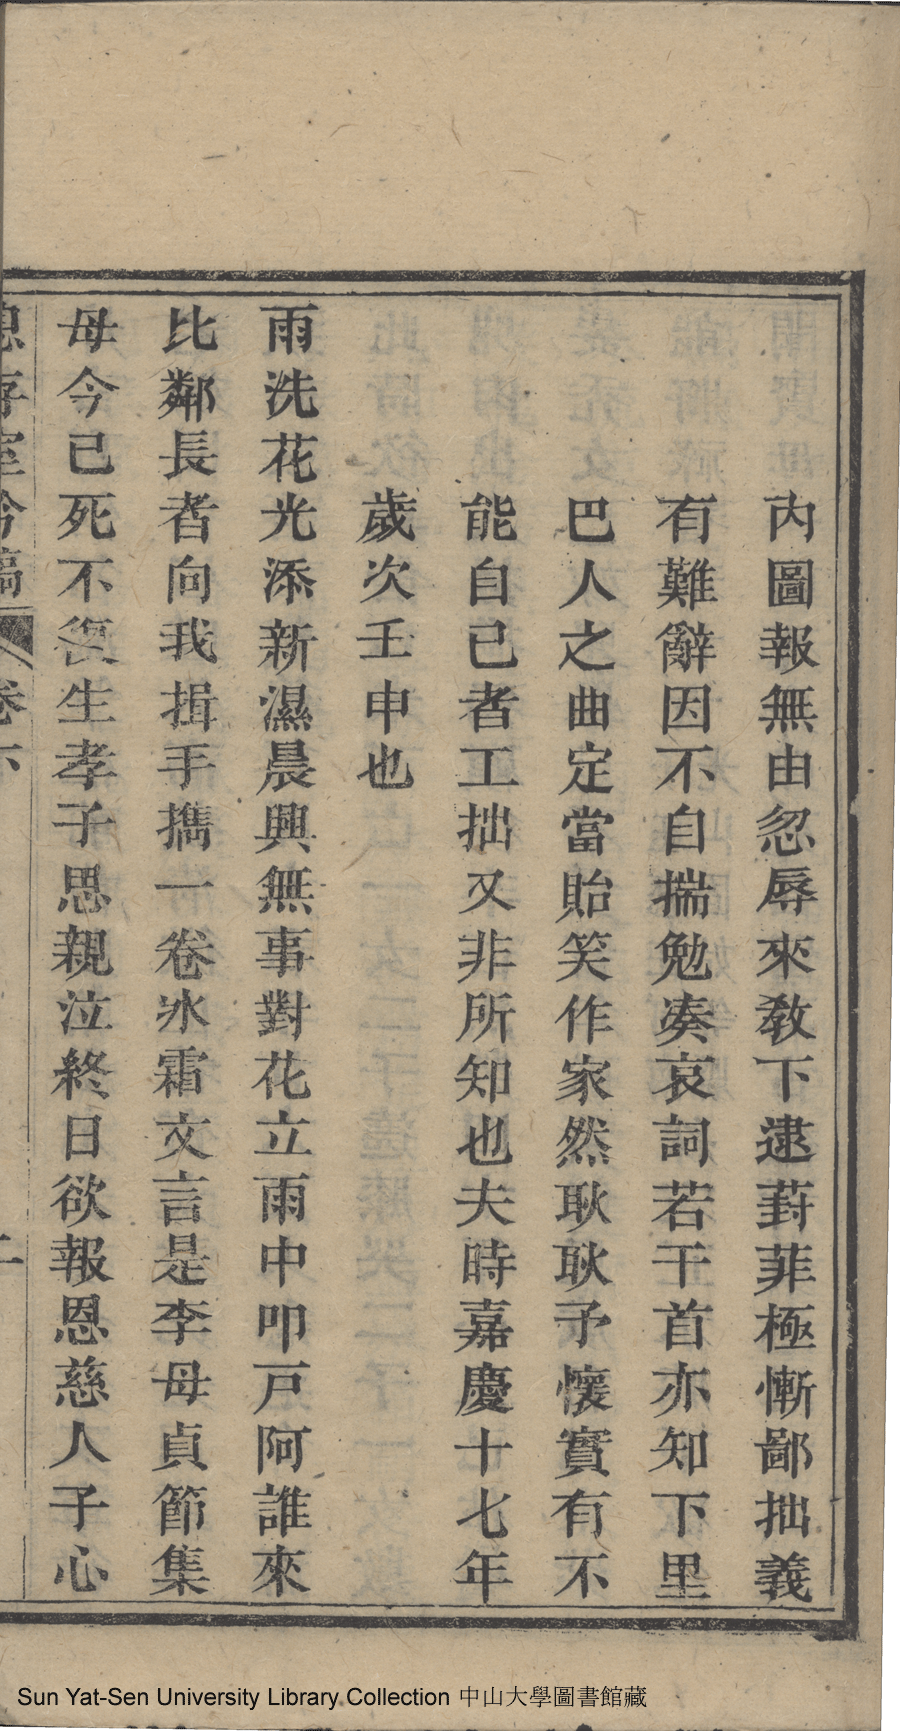 內圖報無由忽辱來教下逮葑菲極慚鄙拙義
有難辭因不自揣勉湊哀詞若干首亦知下里
巴人之曲定當貽笑作家然耿耿予懷實有不
能自已者工拙又非所知也夫時嘉慶十七年
歲次壬申也
雨洗花光添新濕晨興無事對花立雨中叩戸阿誰來
比鄰長者向我揖手攜一卷氷霜文言是李母貞節集
母今已死不復生孝子思親泣終日欲報恩慈人子心
息存室吟稿 卷六 二
Sun Yat-Sen University Library Collection 中山大學圖書館藏